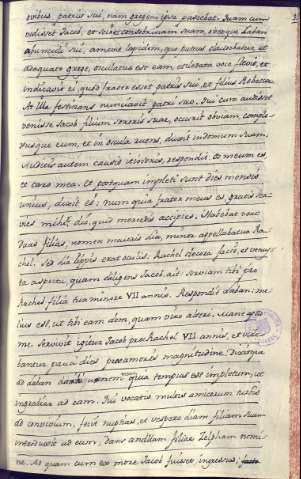 ovibus patris sui, nam gregem ipsa pascebat. Quam cum
vidisset Jacob, et sciret consobrinam suam, ovesque Laban
avunculi sui, amovit lapidem, quo puteus claudebatur, et
adaquato grege, osculatus est eam, et elevata voce flevit, et
indicavit ei, quod frater esset patris sui, et filius Rebeccæ.
At illa festinans nunciavit patri suo. Qui cum audisset
venisse Jacob filium sororis suæ, cucurrit obviam, complex
usque eum, et in oscula ruens, duxit in domum suam.
Auditis autem causis itineris, respondit: Os meum es,
et caro mea. Et postquam impleti sunt dies mensis
unius, dixit ei: num quia frater meus es, gratis ser
vies mihi? dic, quid mercedis accipias. Habebat vero
duas filias, nomen majoris Lia, minor appellabatur Ra
chel. Sed Lia lippis erat oculis, Rachel decora facie, et venus
ta aspectu, quam diligens Jacob, ait: Serviam tibi pro
Rachel filia tua minore VII annis. Respondit Laban: me
lius est, ut tibi eam dem, quam viro alteri. Mane apud
me. Servivit igitur Jacob pro Rachel VII annis, et vide
bantur pauci dies præ amoris magnitudine. Dixitque
ad Laban da mihi uxorem quia tempus est impletum, ut
ingrediar ad eam. Qui vocatis multis amicorum turbis
ad convivium, fecit nuptias, et vespere Liam filiam suam
introduxit ad eum, dans ancillam filiæ Zelpham nomi
ne. Ad quam cum ex more Jacob fuisset ingressus, facto